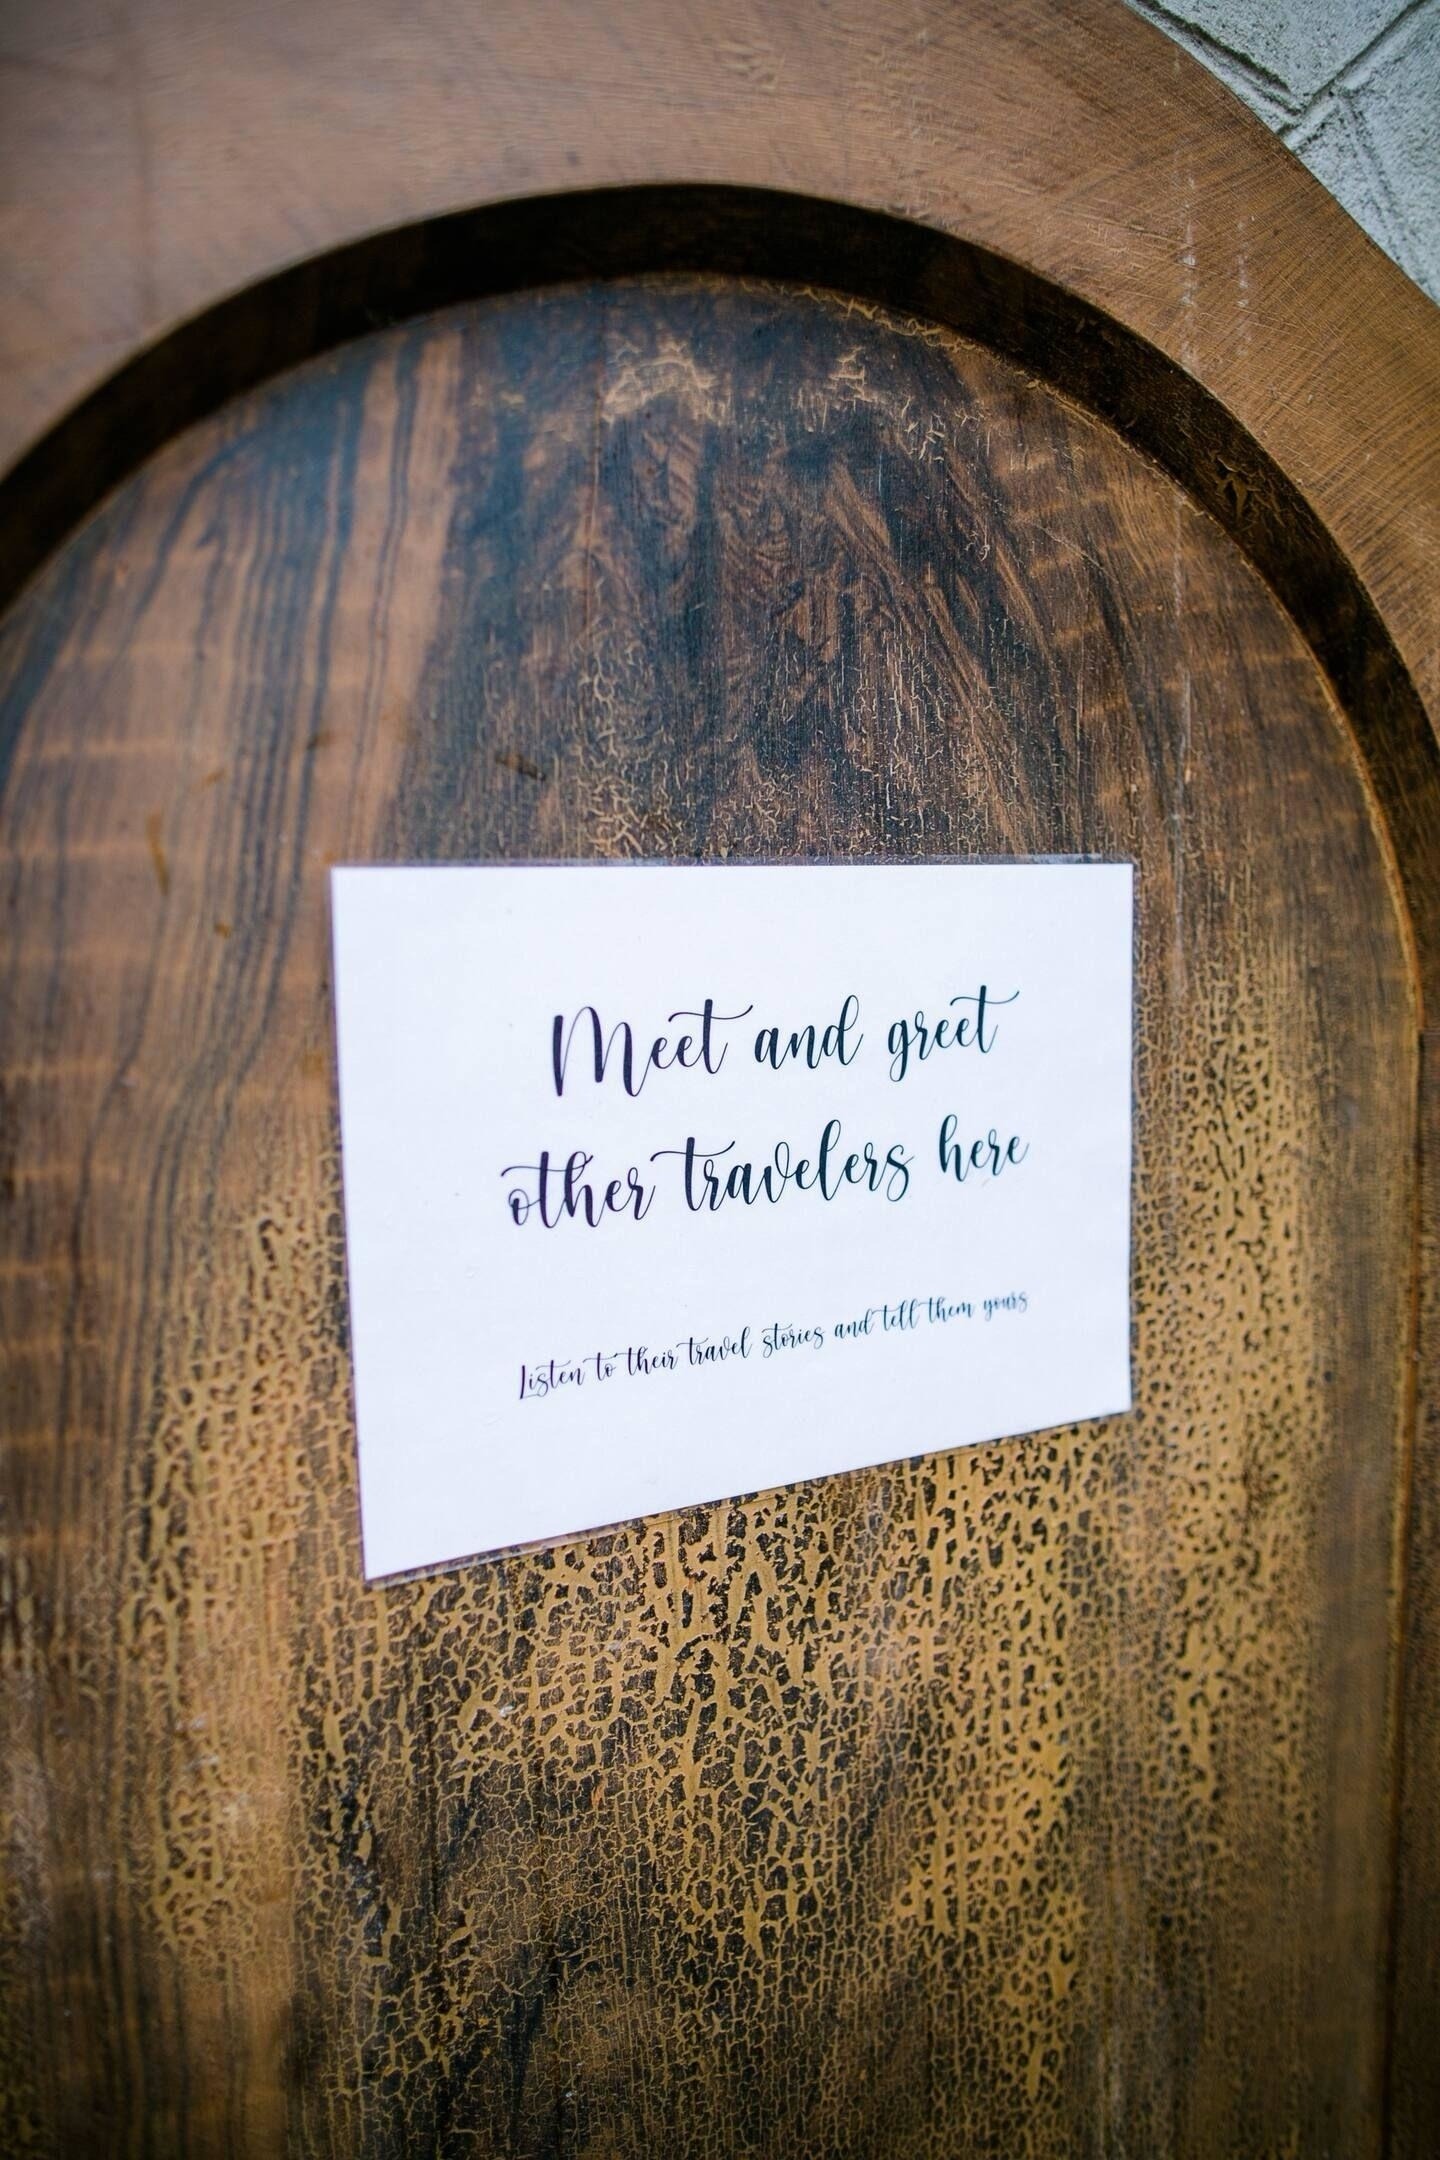 Meet and greet
other travelers here
Listen to their travel stories and tell them yours